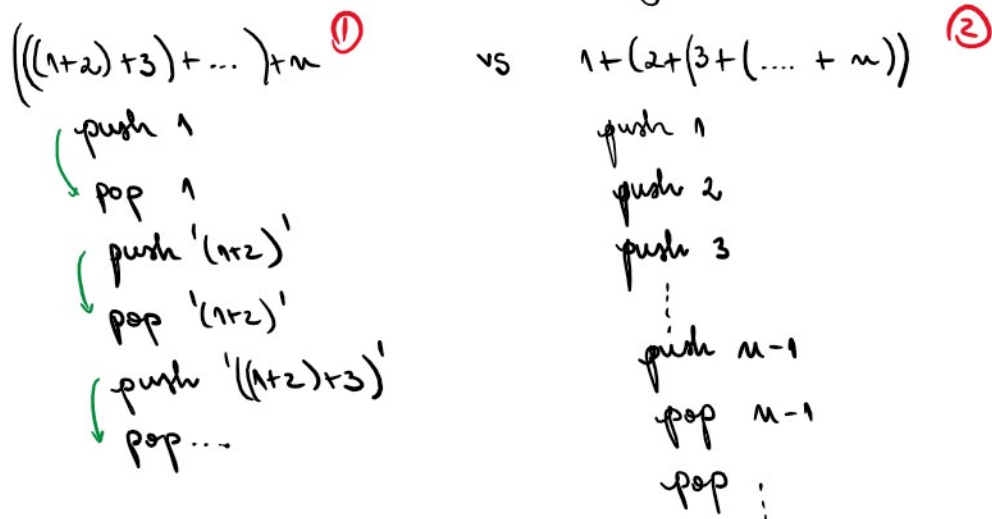 (((1+2)+3)+...)+n ①
push 1
pop 1
push '(1+2)'
pop '(1+2)'
push '((1+2)+3)'
pop ...
vs
1+(2+(3+(.... + n)) ②
push 1
push 2
push 3
push n-1
pop n-1
pop